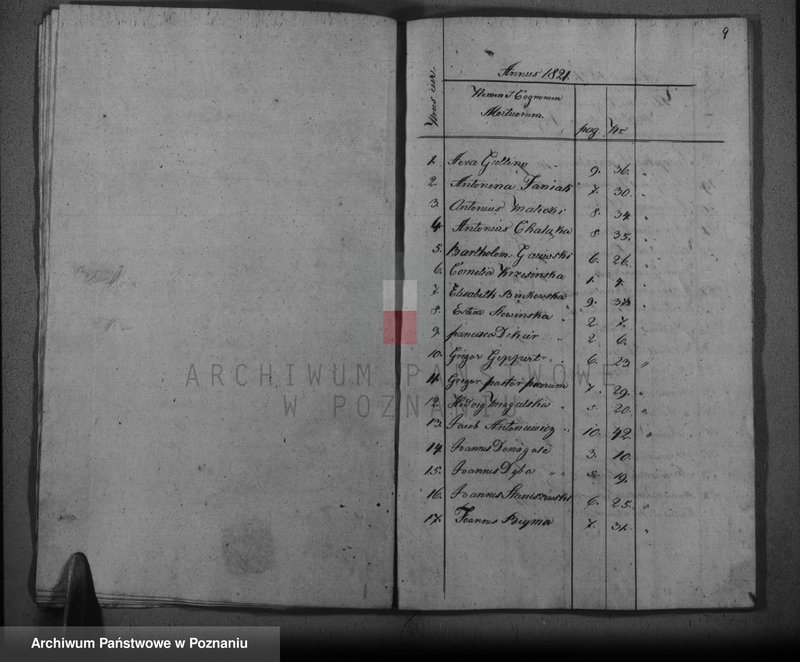 9
Annus 1821.
Nomen et Cognomen
Mortuorum.
pag. Nr.
1. Aeva Gulling 9. 36. "
2. Antonina Faniak 7. 30. "
3. Antonius Małecki 8. 34. "
4. Antonius Chałzka 8. 35. "
5. Bartholom. Gasiorski 6. 26. "
6. Cornelia Krzesinska 1. 4. "
7. Elisabeth Binkowska 9. "
8. Estera Słowinska " 2. 7. "
9. francisca " 2. 6. "
10. Gregor Geppert " 6. 23. "
11. Gregor pastor 7. 29. "
12. Hedvig " 5. 20. "
13. Jacob Antoniewicz " 10. 42. "
14. Joannes Domogała 3. 10. "
15. Joannes Dęba " " 5. 19. "
16. Joannes Staniszewski 6. 25. "
17. Joannes Beyma 7. 31. "
ARCHIWUM PAŃSTWOWE
W POZNANIU
Archiwum Państwowe w Poznaniu